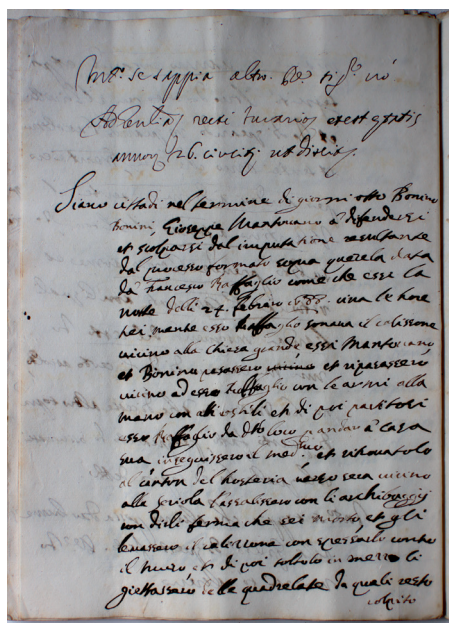 Int.s se sappia altro. R.e sig.r nò
annor. 26. civciter ut dixit.
Siano cittadi nel termine di giorni otto Bonino
Bonini, Gioseppe Mantovano à difendersi
et scolparsi dell'imputatione resultante
dal processo formato sopra querela data
da Francesco Raffaglio come che essi la
notte delli 24. febraro circa le hore
sei mentre esso Raffaglio sonava il calissone
vicino alla chiesa grande essi Mantovano,
et Bonino passassero et ripassassero
vicino ad esso Raffaglio con le armi alla
mano con atti ostili et di poi partitosi
esso Raffaglio da d.to loco andar à casa
sua inseguissero il med.o et ritrovatolo
al canton del hosteria verso sera vicino
alla seriola l'assalissero con li archibuggi
con dirli ferma che sei morto et gli
levassero il calissone con spezzarlo contro
il muro et di poi toltolo in mezzo li
giettassero delle quadrelate da quali restò
colpito